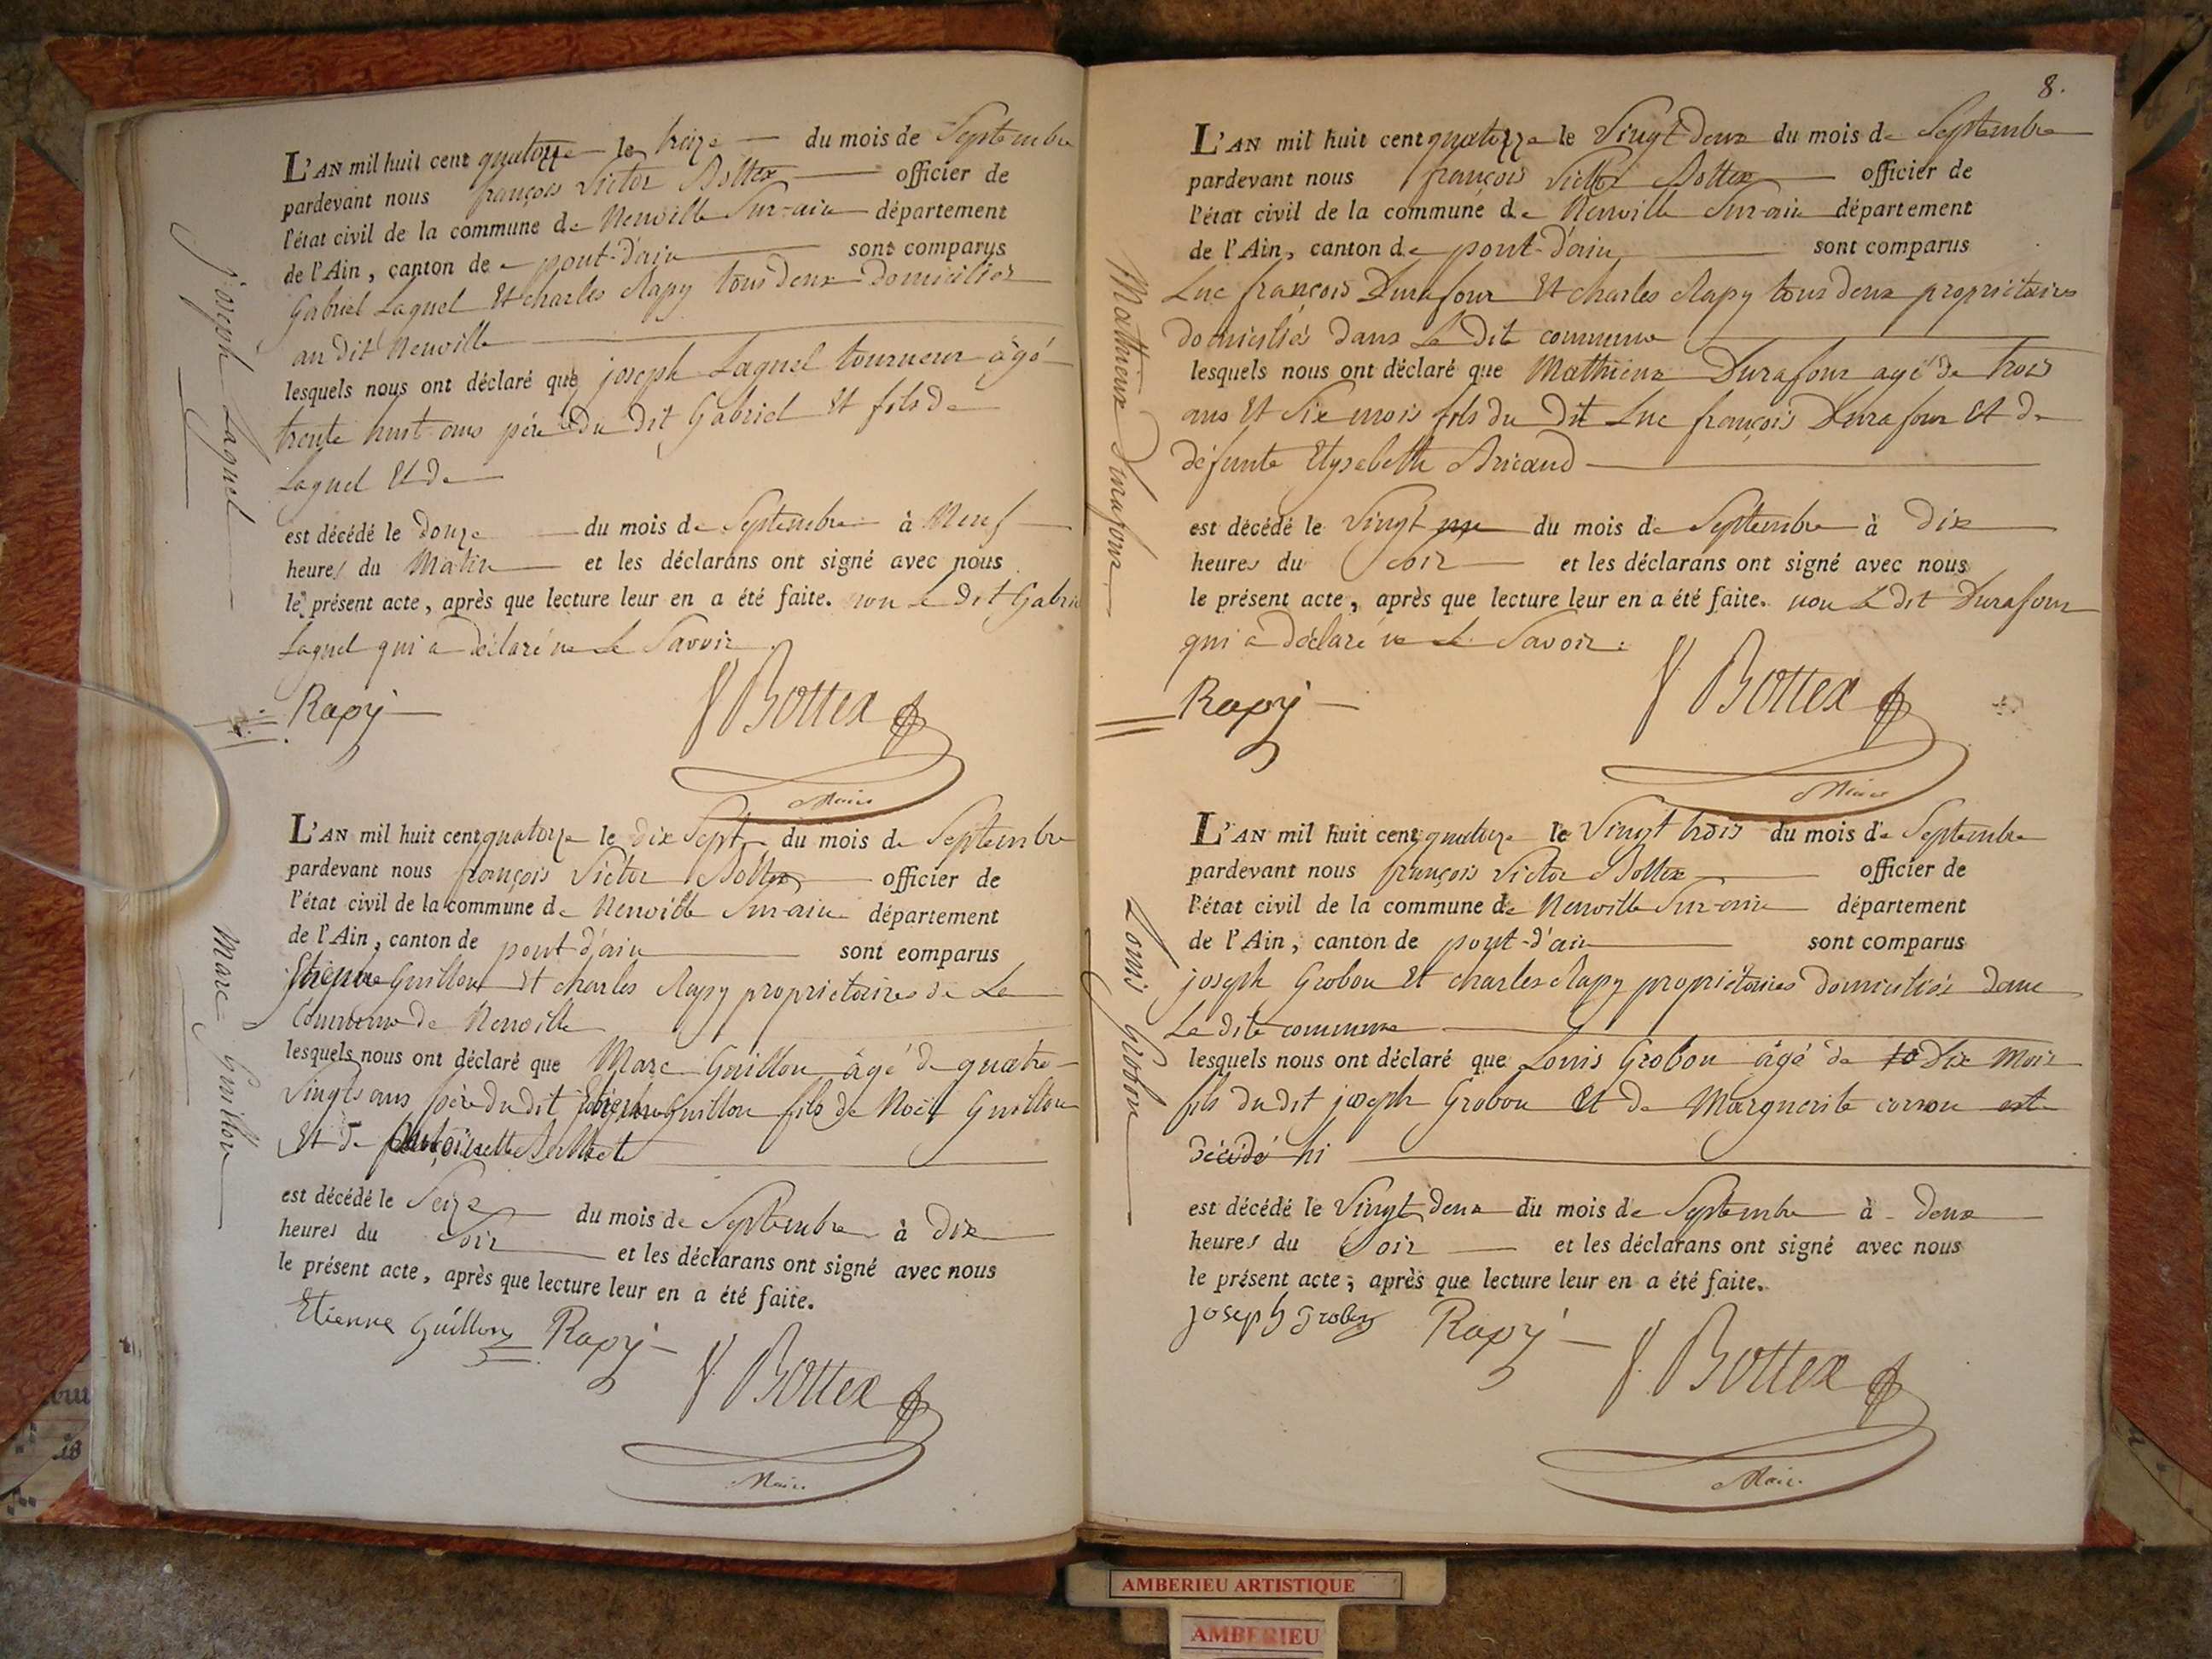 L'AN mil huit cent quatorze le treize du mois de Septembre
pardevant nous françois Victor Bottex officier de
l'état civil de la commune de Neuville Sur-ain département
de l'Ain, canton de pont-d'ain sont comparus
Gabriel Laguel Et charles Rapy tous deux Domiciliés
au dit Neuville
lesquels nous ont déclaré que joseph Laguel tourneur âgé
trente huit ans père du dit Gabriel Et fils de
Laguel Et de
est décédé le Douze du mois de Septembre à Neuf
heures du Matin et les déclarans ont signé avec nous
le présent acte, après que lecture leur en a été faite. non le dit Gabriel
Laguel qui a déclaré ne le Savoir
Rapy V Bottex
Maire
joseph Laguel
L'AN mil huit cent quatorze le dix Sept du mois de Septembre
pardevant nous françois Victor Bottex officier de
l'état civil de la commune de Neuville Sur-ain département
de l'Ain, canton de pont-d'ain sont comparus
Etienne Guillon Et charles Rapy proprietaires de La
Commune de Neuville
lesquels nous ont déclaré que Marc Guillon âgé de quatre
Vingts ans père du dit Etienne Guillon fils de Noël Guillon
Et de
est décédé le Seize du mois de Septembre à Dix
heures du Soir et les déclarans ont signé avec nous
le présent acte, après que lecture leur en a été faite.
Etienne Guillon Rapy V Bottex
Maire
Marc Guillon
8.
L'AN mil huit cent quatorze le Vingt Deux du mois de Septembre
pardevant nous françois Victor Bottex officier de
l'état civil de la commune de Neuville Sur-ain département
de l'Ain, canton de pont-d'ain sont comparus
Luc françois Durafour Et charles Rapy tous deux proprietaires
domiciliés dans La Dite commune
lesquels nous ont déclaré que Mathieux Durafour agé de trois
ans Et Six mois fils du Dit Luc françois Durafour Et de
défunte Elysabeth Bricaud
est décédé le Vingt un du mois de Septembre à Dix
heures du Soir et les déclarans ont signé avec nous
le présent acte, après que lecture leur en a été faite. non Le dit Durafour
qui a déclaré ne le Savoir.
Rapy V Bottex
Maire
Matthieux Durafour
L'AN mil huit cent quatorze le Vingt trois du mois de Septembre
pardevant nous françois Victor Bottex officier de
l'état civil de la commune de Neuville Sur-ain département
de l'Ain, canton de pont-d'ain sont comparus
joseph Grobon Et charles Rapy proprietaires domiciliés dans
La dite commune
lesquels nous ont déclaré que Louis Grobon âgé de Dix Mois
fils du dit joseph Grobon Et de Marguerite corron est
décédé hi
est décédé le Vingt deux du mois de Septembre à Deux
heures du Soir et les déclarans ont signé avec nous
le présent acte, après que lecture leur en a été faite.
joseph Grobon Rapy V Bottex
Maire
Louis Grobon
AMBERIEU ARTISTIQUE
AMBERIEU